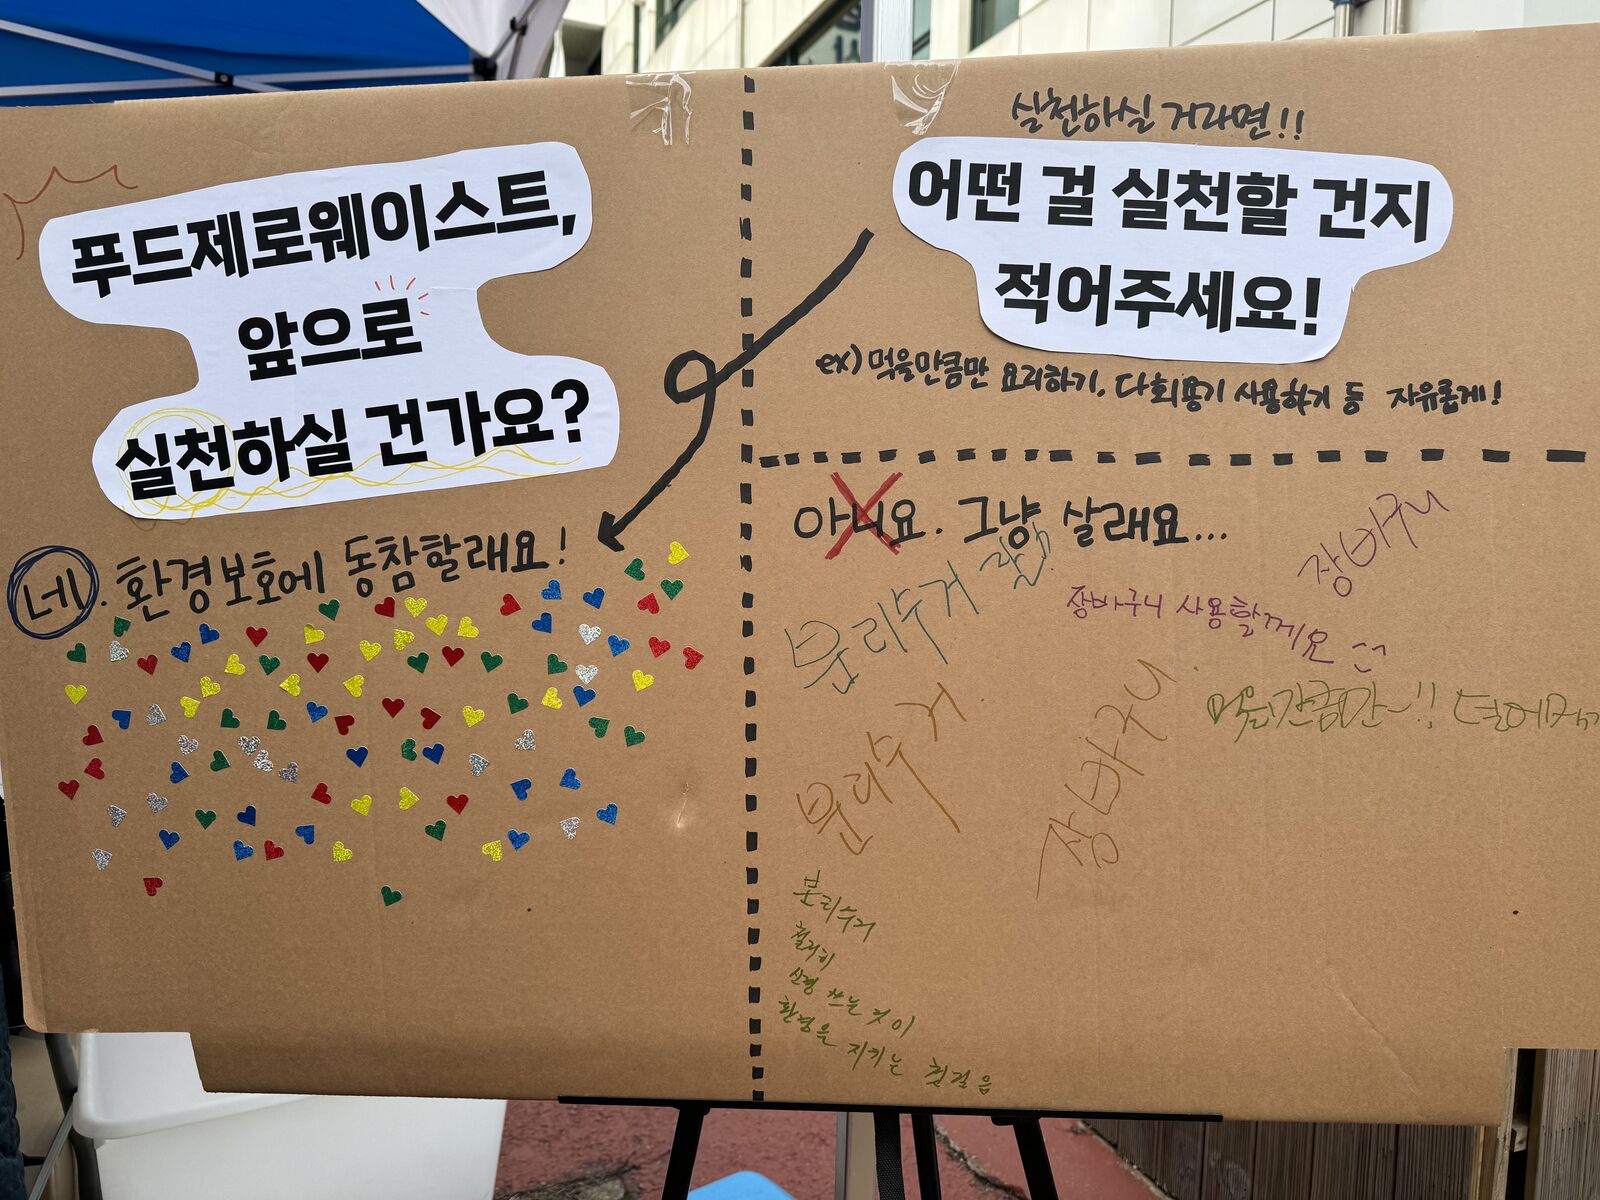 푸드제로웨이스트,
앞으로
실천하실 건가요?
네. 환경보호에 동참할래요!
실천하실 거라면!!
어떤 걸 실천할 건지
적어주세요!
ex) 먹을만큼만 요리하기, 다회용기 사용하기 등 자유롭게!
아니요. 그냥 살래요...
분리수거
장바구니
장바구니 사용할께요
분리수거
장바구니.
분리수거
철저히
신경 쓰는 것이
환경을 지키는 첫걸음